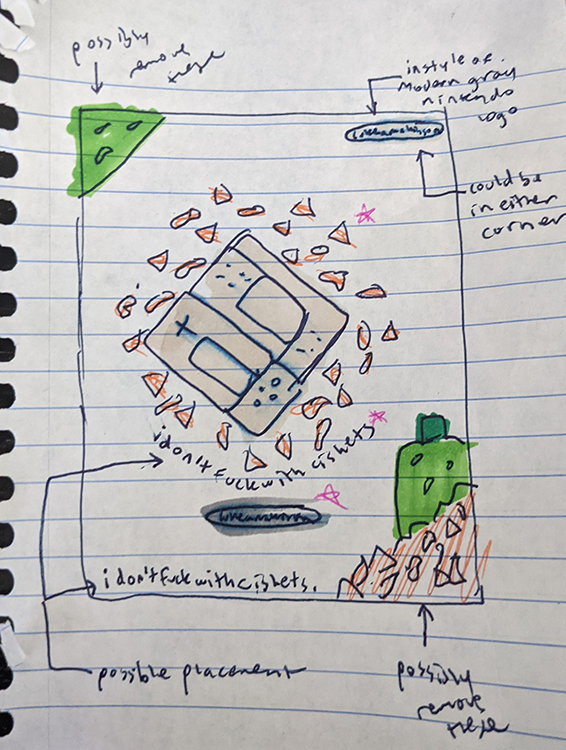 possibly
remove
these
instyle of
Modern gray
nintendo
logo
could be
in either
corner
i don't fuck with cishets
i don't fuck with cishets.
possible placement
possibly
remove
these